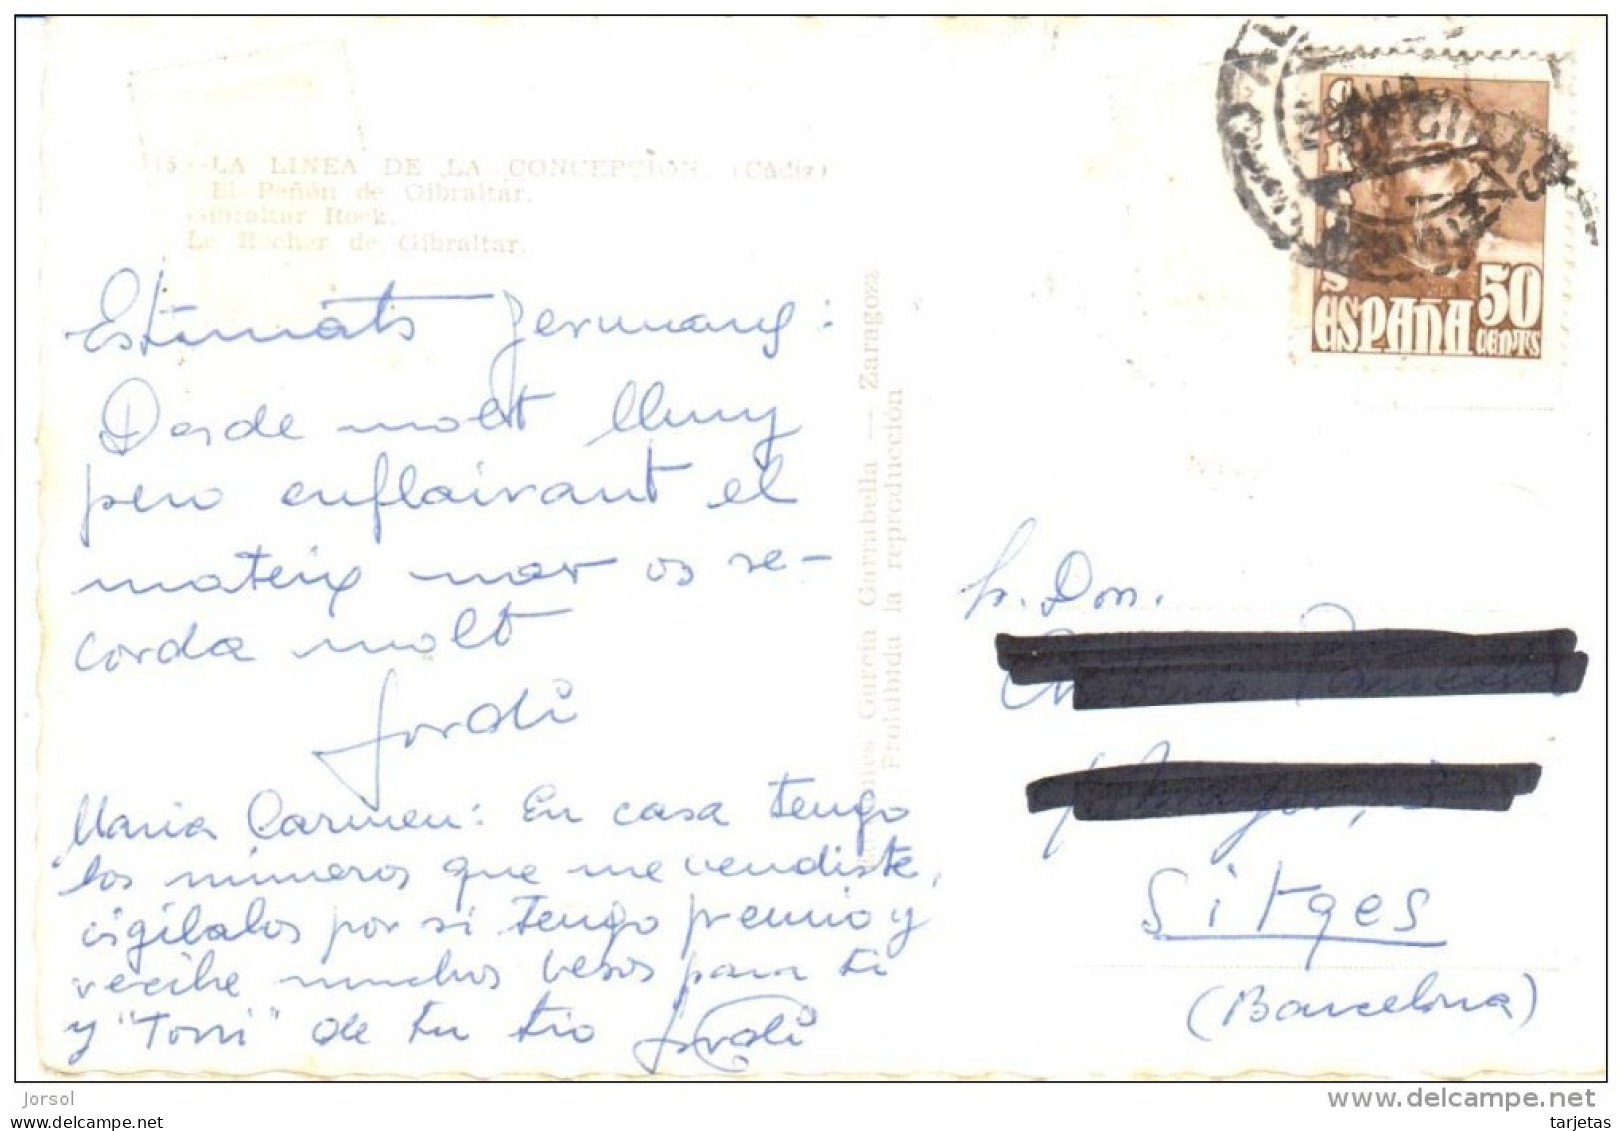 15.-LA LINEA DE LA CONCEPCION. (Cádiz)
El Peñón de Gibraltar.
Gibraltar Rock.
Le Rocher de Gibraltar.
Estimats germans:
Desde molt lluny
pero enflairant el
mateix mar os re-
corda molt
Jordi
Maria Carmen: En casa tengo
los números que me vendiste,
vigilalos por si tengo premio y
recibe muchos besos para ti
y "Toni" de tu tio Jordi
Garcia Garrabella — Zaragoza
Prohibida la reproducción
CORREOS
ESPAÑA 50
CENTS
Sr. Don.
Sitges
(Barcelona)
Jorsol
delcampe.net
tarjetas